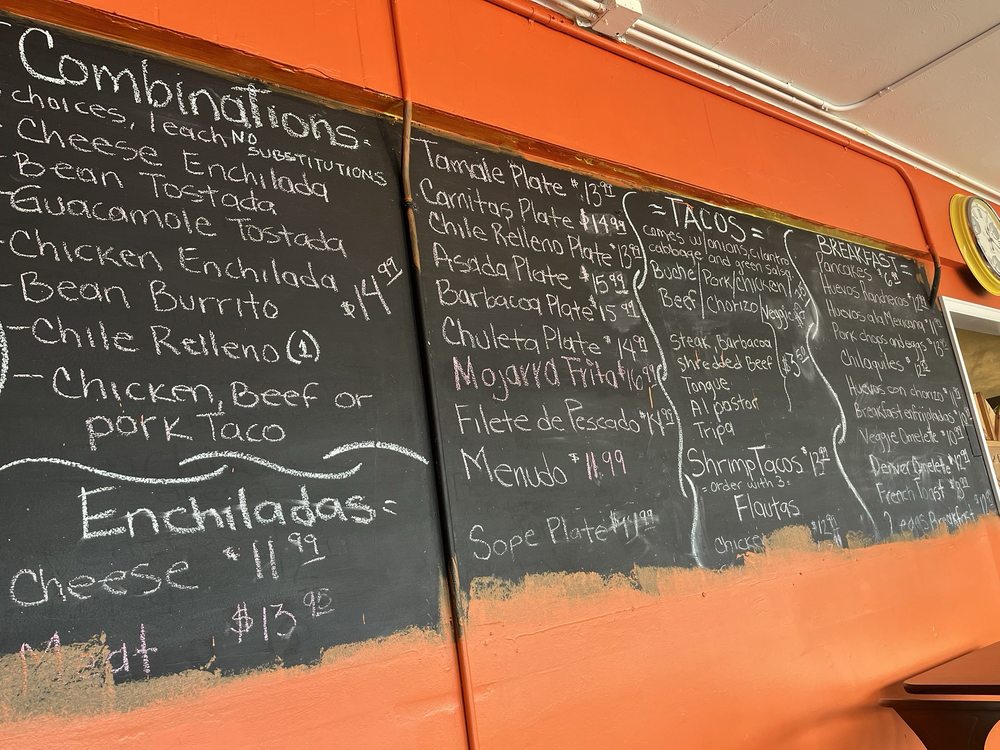 Combinations=
choices, 1 each NO SUBSTITUTIONS
- Cheese Enchilada
- Bean Tostada
- Guacamole Tostada
- Chicken Enchilada
- Bean Burrito $14.99
- Chile Relleno (1)
- Chicken, Beef or
pork Taco
Enchiladas=
Cheese $11.99
Meat $13.95
Tamale Plate $13.99
Carnitas Plate $14.99
Chile Relleno Plate $13.99
Asada Plate $15.99
Barbacoa Plate $15.99
Chuleta Plate $14.99
Mojarra Frita $16.99
Filete de Pescado $14.99
Menudo $11.99
Sope Plate
=TACOS=
comes w/onions, cilantro
cabbage and green salsa
Buche/Pork/chicken/
Beef/Chorizo/Veggie
Steak, Barbacoa
Shredded Beef
Tongue
Al pastor
Tripa
Shrimp Tacos
=order with 3=
Flautas
BREAKFAST=
Pancakes $6.99
Huevos Rancheros
Huevos ala Mexicana
Pork chops and eggs
Chilaquiles
Huevos con chorizo
Breakfast enfrijoladas
Veggie Omelete
Denver Omelete
French Toast
2 eggs Breakfast